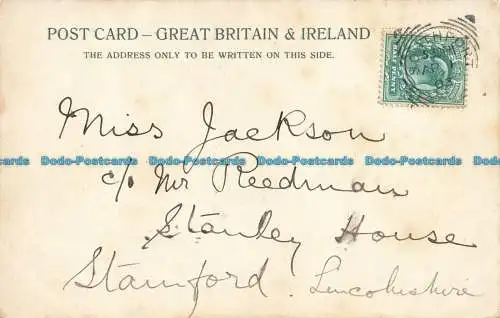 POST CARD – GREAT BRITAIN & IRELAND
THE ADDRESS ONLY TO BE WRITTEN ON THIS SIDE.
Miss Jackson
Dodo-Postcards Dodo-Postcards Dodo-Postcards Dodo-Postcards
c/o Mr Reedman
Stanley House
Stamford. Lincolnshire